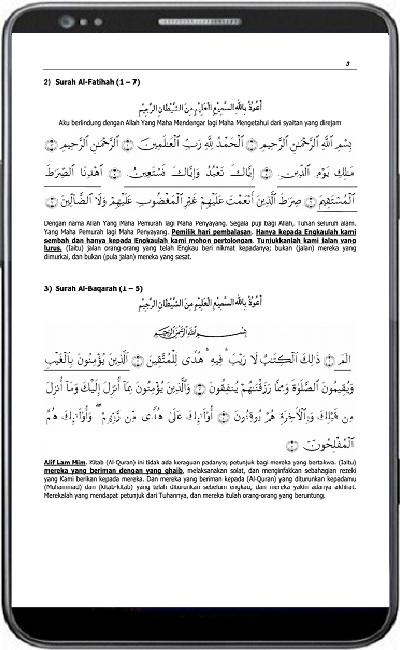 3
2) Surah Al-Fatihah (1 – 7)
أَعُوذُ بِاللهِ السَّمِيْعِ الْعَلِيْمِ مِنَ الشَّيْطَانِ الرَّجِيْمِ
Aku berlindung dengan Allah Yang Maha Mendengar lagi Maha Mengetahui dari syaitan yang direjam
بِسْمِ ٱللَّهِ ٱلرَّحْمَٰنِ ٱلرَّحِيمِ ۝ ٱلْحَمْدُ لِلَّهِ رَبِّ ٱلْعَٰلَمِينَ ۝ ٱلرَّحْمَٰنِ ٱلرَّحِيمِ ۝
مَٰلِكِ يَوْمِ ٱلدِّينِ ۝ إِيَّاكَ نَعْبُدُ وَإِيَّاكَ نَسْتَعِينُ ۝ ٱهْدِنَا ٱلصِّرَٰطَ
ٱلْمُسْتَقِيمَ ۝ صِرَٰطَ ٱلَّذِينَ أَنْعَمْتَ عَلَيْهِمْ غَيْرِ ٱلْمَغْضُوبِ عَلَيْهِمْ وَلَا ٱلضَّآلِّينَ ۝
Dengan nama Allah Yang Maha Pemurah lagi Maha Penyayang. Segala puji bagi Allah, Tuhan seluruh alam.
Yang Maha Pemurah lagi Maha Penyayang. Pemilik hari pembalasan. Hanya kepada Engkaulah kami
sembah dan hanya kepada Engkaulah kami mohon pertolongan. Tunjukkanlah kami jalan yang
lurus. (Iaitu) jalan orang-orang yang telah Engkau beri nikmat kepadanya; bukan (jalan) mereka yang
dimurkai, dan bukan (pula jalan) mereka yang sesat.
3) Surah Al-Baqarah (1 – 5)
أَعُوذُ بِاللهِ السَّمِيْعِ الْعَلِيْمِ مِنَ الشَّيْطَانِ الرَّجِيْمِ
بِسْمِ ٱللَّهِ ٱلرَّحْمَٰنِ ٱلرَّحِيمِ
الٓمٓ ۝ ذَٰلِكَ ٱلْكِتَٰبُ لَا رَيْبَ ۛ فِيهِ ۛ هُدًى لِّلْمُتَّقِينَ ۝ ٱلَّذِينَ يُؤْمِنُونَ بِٱلْغَيْبِ
وَيُقِيمُونَ ٱلصَّلَوٰةَ وَمِمَّا رَزَقْنَٰهُمْ يُنفِقُونَ ۝ وَٱلَّذِينَ يُؤْمِنُونَ بِمَآ أُنزِلَ إِلَيْكَ وَمَآ أُنزِلَ
مِن قَبْلِكَ وَبِٱلْأَخِرَةِ هُمْ يُوقِنُونَ ۝ أُو۟لَٰٓئِكَ عَلَىٰ هُدًى مِّن رَّبِّهِمْ ۖ وَأُو۟لَٰٓئِكَ هُمُ
ٱلْمُفْلِحُونَ ۝
Alif Lam Mim. Kitab (Al-Quran) ini tidak ada keraguan padanya; petunjuk bagi mereka yang bertakwa. (Iaitu)
mereka yang beriman dengan yang ghaib, melaksanakan solat, dan menginfakkan sebahagian rezeki
yang Kami berikan kepada mereka. Dan mereka yang beriman kepada (Al-Quran) yang diturunkan kepadamu
(Muhammad) dan (kitab-kitab) yang telah diturunkan sebelum engkau, dan mereka yakin adanya akhirat.
Merekalah yang mendapat petunjuk dari Tuhannya, dan mereka itulah orang-orang yang beruntung.